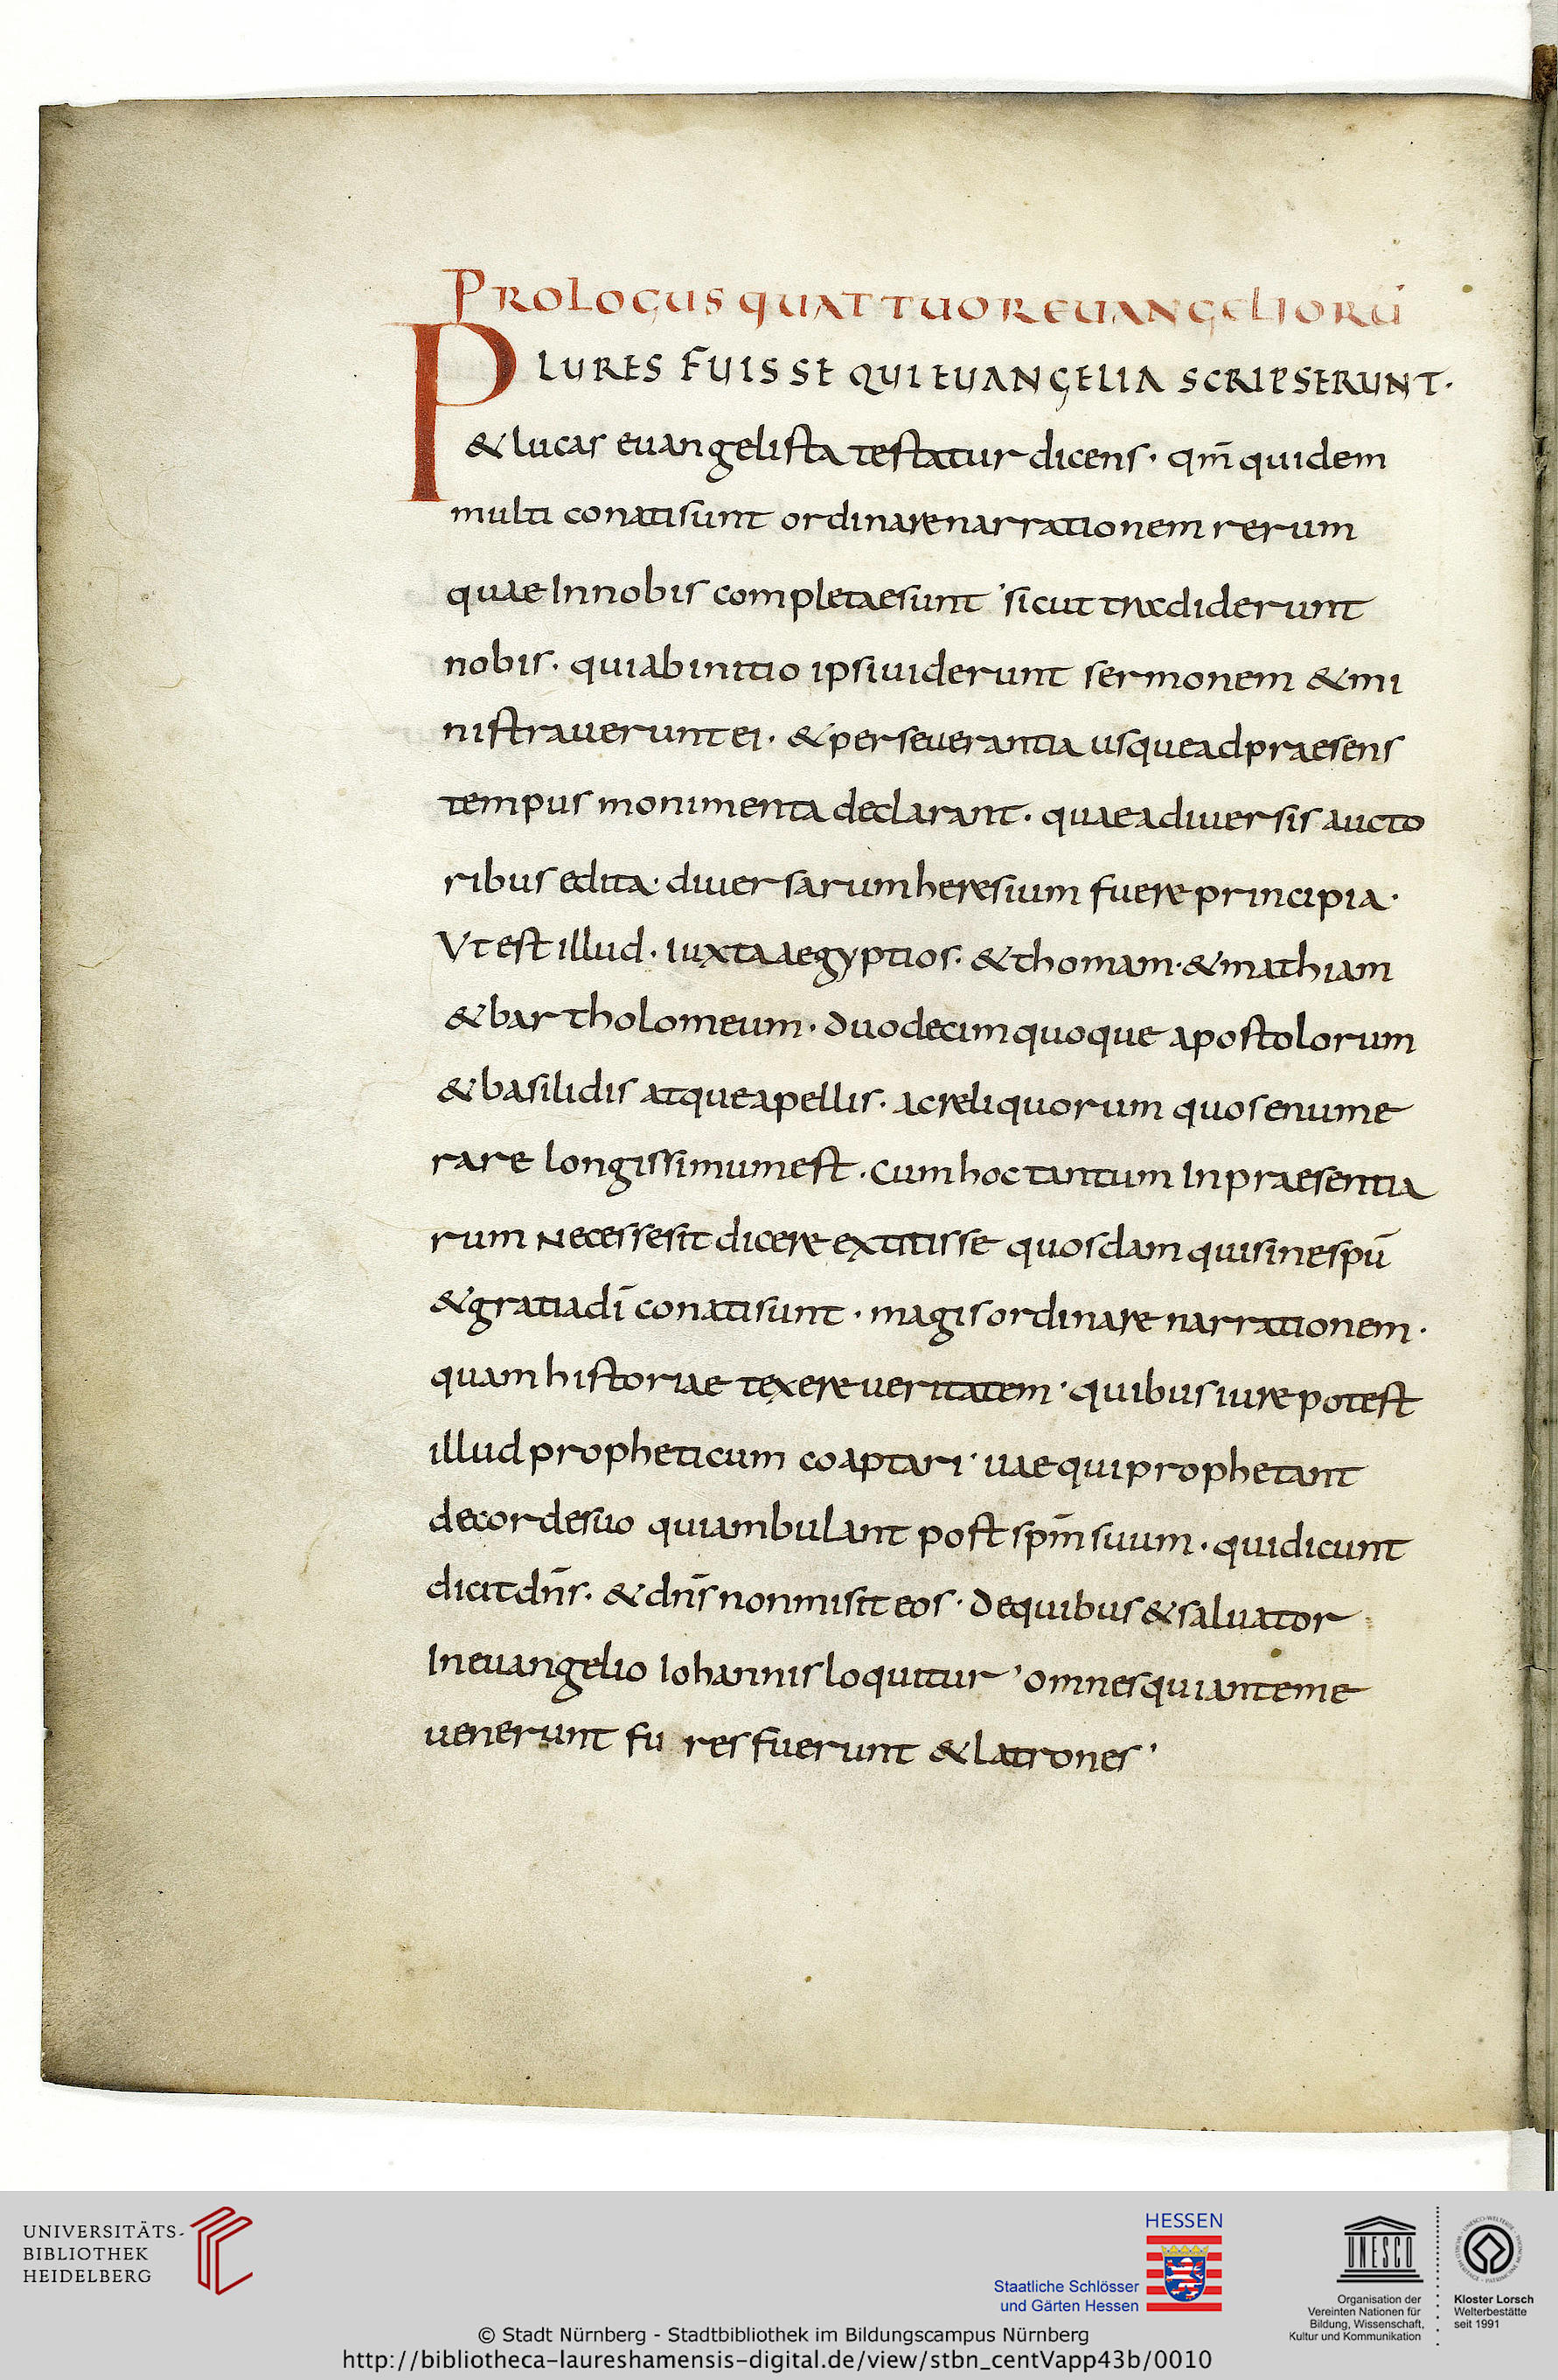 PROLOGUS QUATTUOR EUANGELIORŪ
PLURES FUISSE QUI EUANGELIA SCRIPSERUNT·
& lucas euangelista testatur dicens· qm̄ quidem
multi conati sunt ordinare narrationem rerum
quae In nobis completae sunt sicut tradiderunt
nobis· qui ab initio ipsi uiderunt sermonem & mi
nistrauerunt ei· & perseuerantia usque ad praesens
tempus monimenta declarant· quae a diuersis aucto
ribus edita· diuersarum heresium fuere principia·
Vt est illud· iuxta aegyptios· & thomam· & mathiam
& bartholomeum· duodecim quoque apostolorum
& basilidis atque apellis· ac reliquorum quos enume
rare longissimum est· Cum hoc tantum In praesentia
rum Necesse sit dicere extitisse quosdam qui sine spū
& gratia dī conati sunt· magis ordinare narrationem·
quam historiae texere ueritatem· quibus iure potest
illud propheticum coaptari· uae qui prophetant
de corde suo qui ambulant post spm̄ suum· qui dicunt
dicit dn̄s· & dn̄s non misit eos· De quibus & saluator
In euangelio Iohannis loquitur· omnes qui ante me
uenerunt fu res fuerunt & latrones·
UNIVERSITÄTS-
BIBLIOTHEK
HEIDELBERG
HESSEN
Staatliche Schlösser
und Gärten Hessen
UNESCO
Organisation der
Vereinten Nationen für
Bildung, Wissenschaft,
Kultur und Kommunikation
Kloster Lorsch
Welterbestätte
seit 1991
© Stadt Nürnberg - Stadtbibliothek im Bildungscampus Nürnberg
http://bibliotheca-laureshamensis-digital.de/view/stbn_centVapp43b/0010